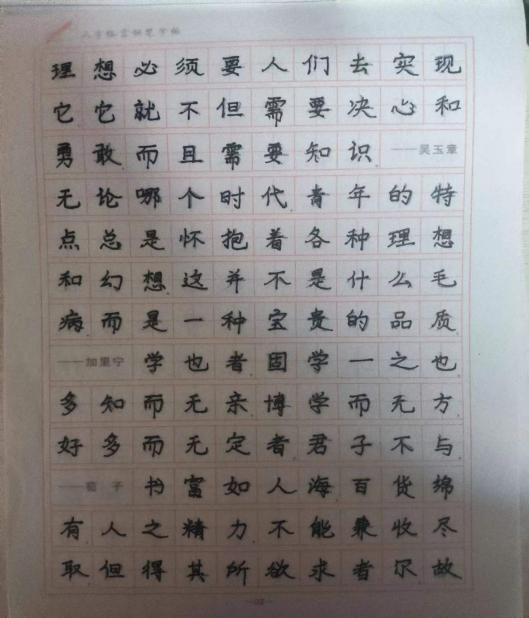 人字格言钢笔字帖
理想必须要人们去实现
它它就不但需要决心和
勇敢而且需要知识——吴玉章
无论哪个时代青年的特
点总是怀抱着各种理想
和幻想这并不是什么毛
病而是一种宝贵的品质
——加里宁学也者固学一之也
多知而无亲博学而无方
好多而无定者君子不与
——荀子书富如人海百货绵
有人之精力不能兼收尽
取但得其所欲求者尔故